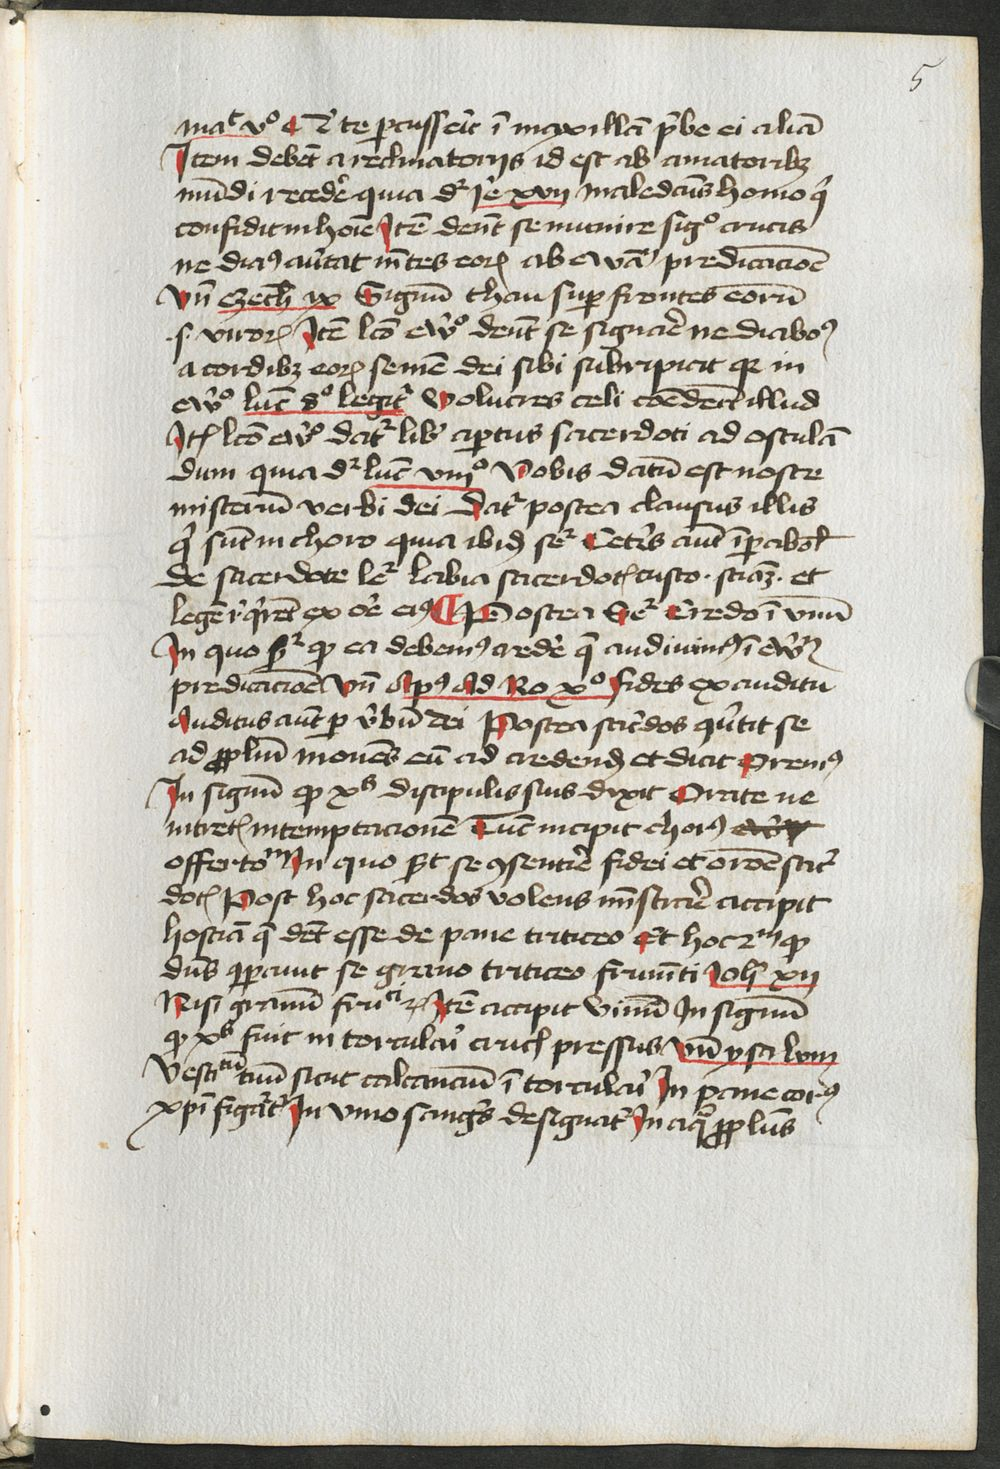 5
mat̄ v° Q̄ te ꝑcusserit ī maxillā p̄be ei aliā
Item debēt a reclinatoriis id est ab amatoribꝫ
mūdi recedē quia dr̄ Ie xvii maledcūs homo q̄
confidit in hoīe Itē dēnt se munire sigº crucis
ne diaꝰ auertat mētes eoꝝ ab ewā predicacioē
Vn̄ ezech ix Signū thau super frontes eorū
.s. viroꝝ Itē lcō ew̄º dēnt se signare ne diaboꝰ
a cordibꝫ eoꝝ semē dei sibi subripiat qꝛ in
ew̄º luc̄ 8º legitr̄ Volucres celi comederūt illud
Itē lcō ew̄º datr̄ lib̄ aptus sacerdoti ad osculā
dum quia dr̄ luc̄ viiiº Vobis datū est nosce
misteriū verbi dei Datr̄ postea clausus illis
q̄ sūt in choro quia ibidē ser̄ Ceteris aūt ī ꝑabol̄
de sacerdote ler̄ labia sacerdotꝭ custo. sciāꝫ. et
legē reqͥrēt ex ore eiꝰ Postea Ser̄ Credo ī vnū
In quo sr̄ ꝙ ea debemꝰ credē q̄ audiuimꝰ ī ew̄ꝫ
predicacioē Vn̄ Apꝰ Ad Ro xº fides ex auditu
Auditus aūt p v̄bū dei Postea sac̄dos ꝯūtit se
ad pplm̄ monēs eū ad credendū et dicit Oremꝰ
In signū ꝙ xp̄s discipulis suis dixit Orate ne
intretꝭ in temptacionē Tūc incipit chorꝰ
offertoᵐ In quo sr̄t se ꝯsentire fidei et oroē sac̄
dotꝭ Post hoc sacerdos volens mīstrare accipit
hostiā q̄ dēt esse de pane triticeo Et hoc ꝙ
dn̄s ꝯparauit se grano triticeo frumēti Ioh̄ xii
Nisi granū fruᶜⁱ Itē accipit vinū In signū
ꝙ xp̄s fuit in torculari crucꝭ pressus Vn̄ ysa lxiii
Vestitᵘᵐ tuū sicut calcanciū ī torculari In pane corꝰ
xp̄i figꝛatr̄ In vino sangs̄ designatr̄ In aq̄ pplus